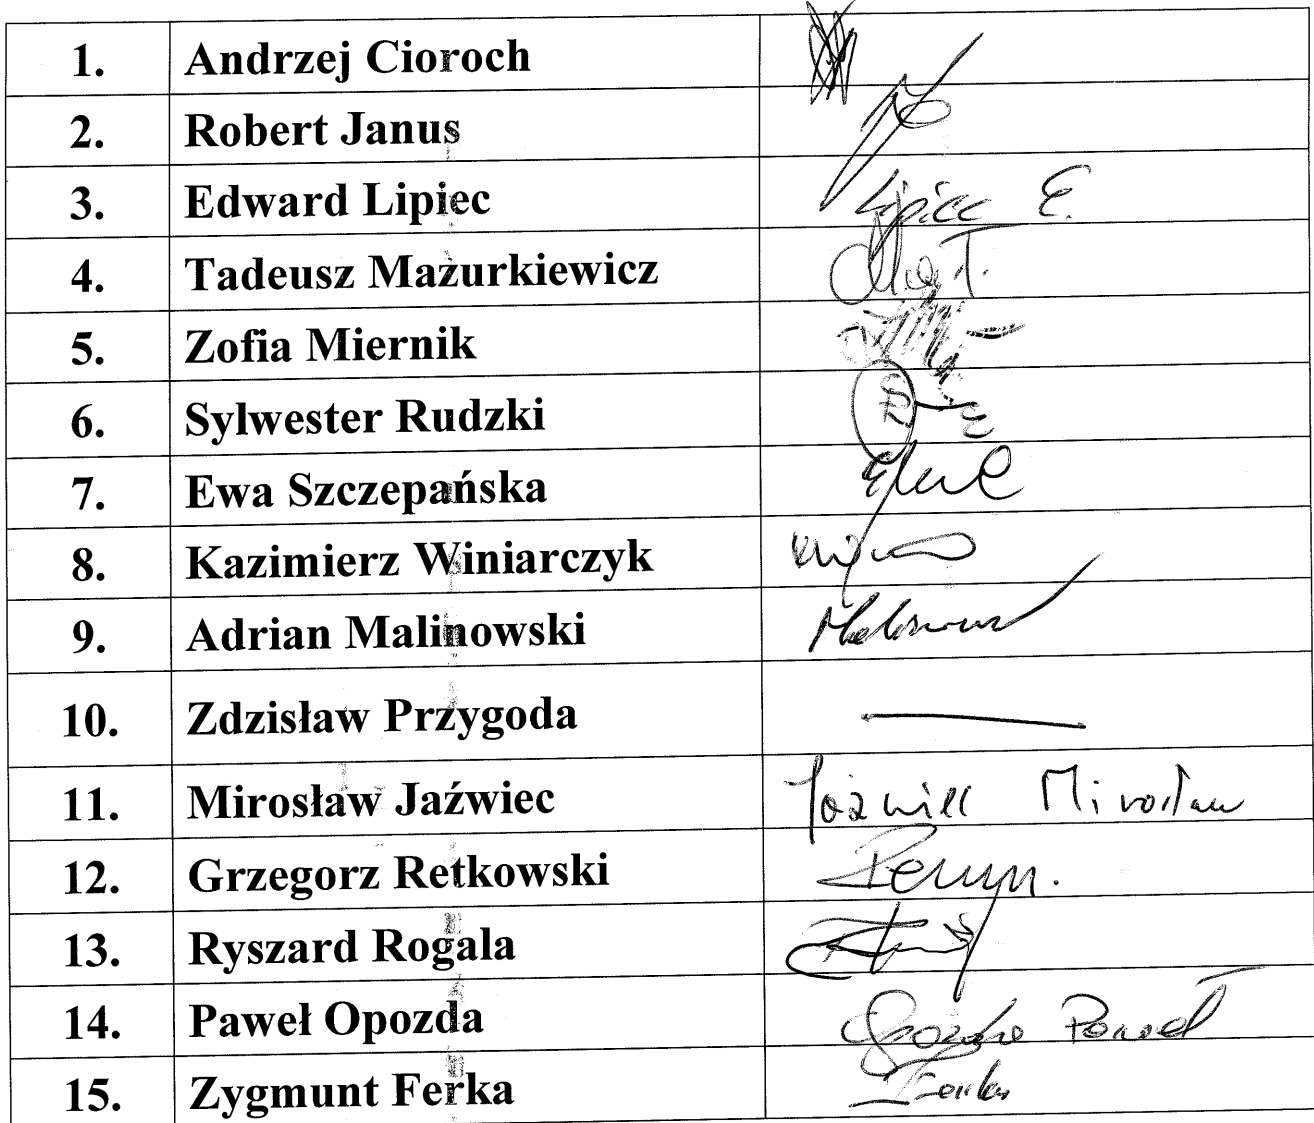 1. Andrzej Cioroch
2. Robert Janus
3. Edward Lipiec Lipiec E.
4. Tadeusz Mazurkiewicz
5. Zofia Miernik
6. Sylwester Rudzki
7. Ewa Szczepańska
8. Kazimierz Winiarczyk
9. Adrian Malinowski
10. Zdzisław Przygoda
11. Mirosław Jaźwiec Jaźwiec Mirosław
12. Grzegorz Retkowski
13. Ryszard Rogala
14. Paweł Opozda Opozda Paweł
15. Zygmunt Ferka Ferka